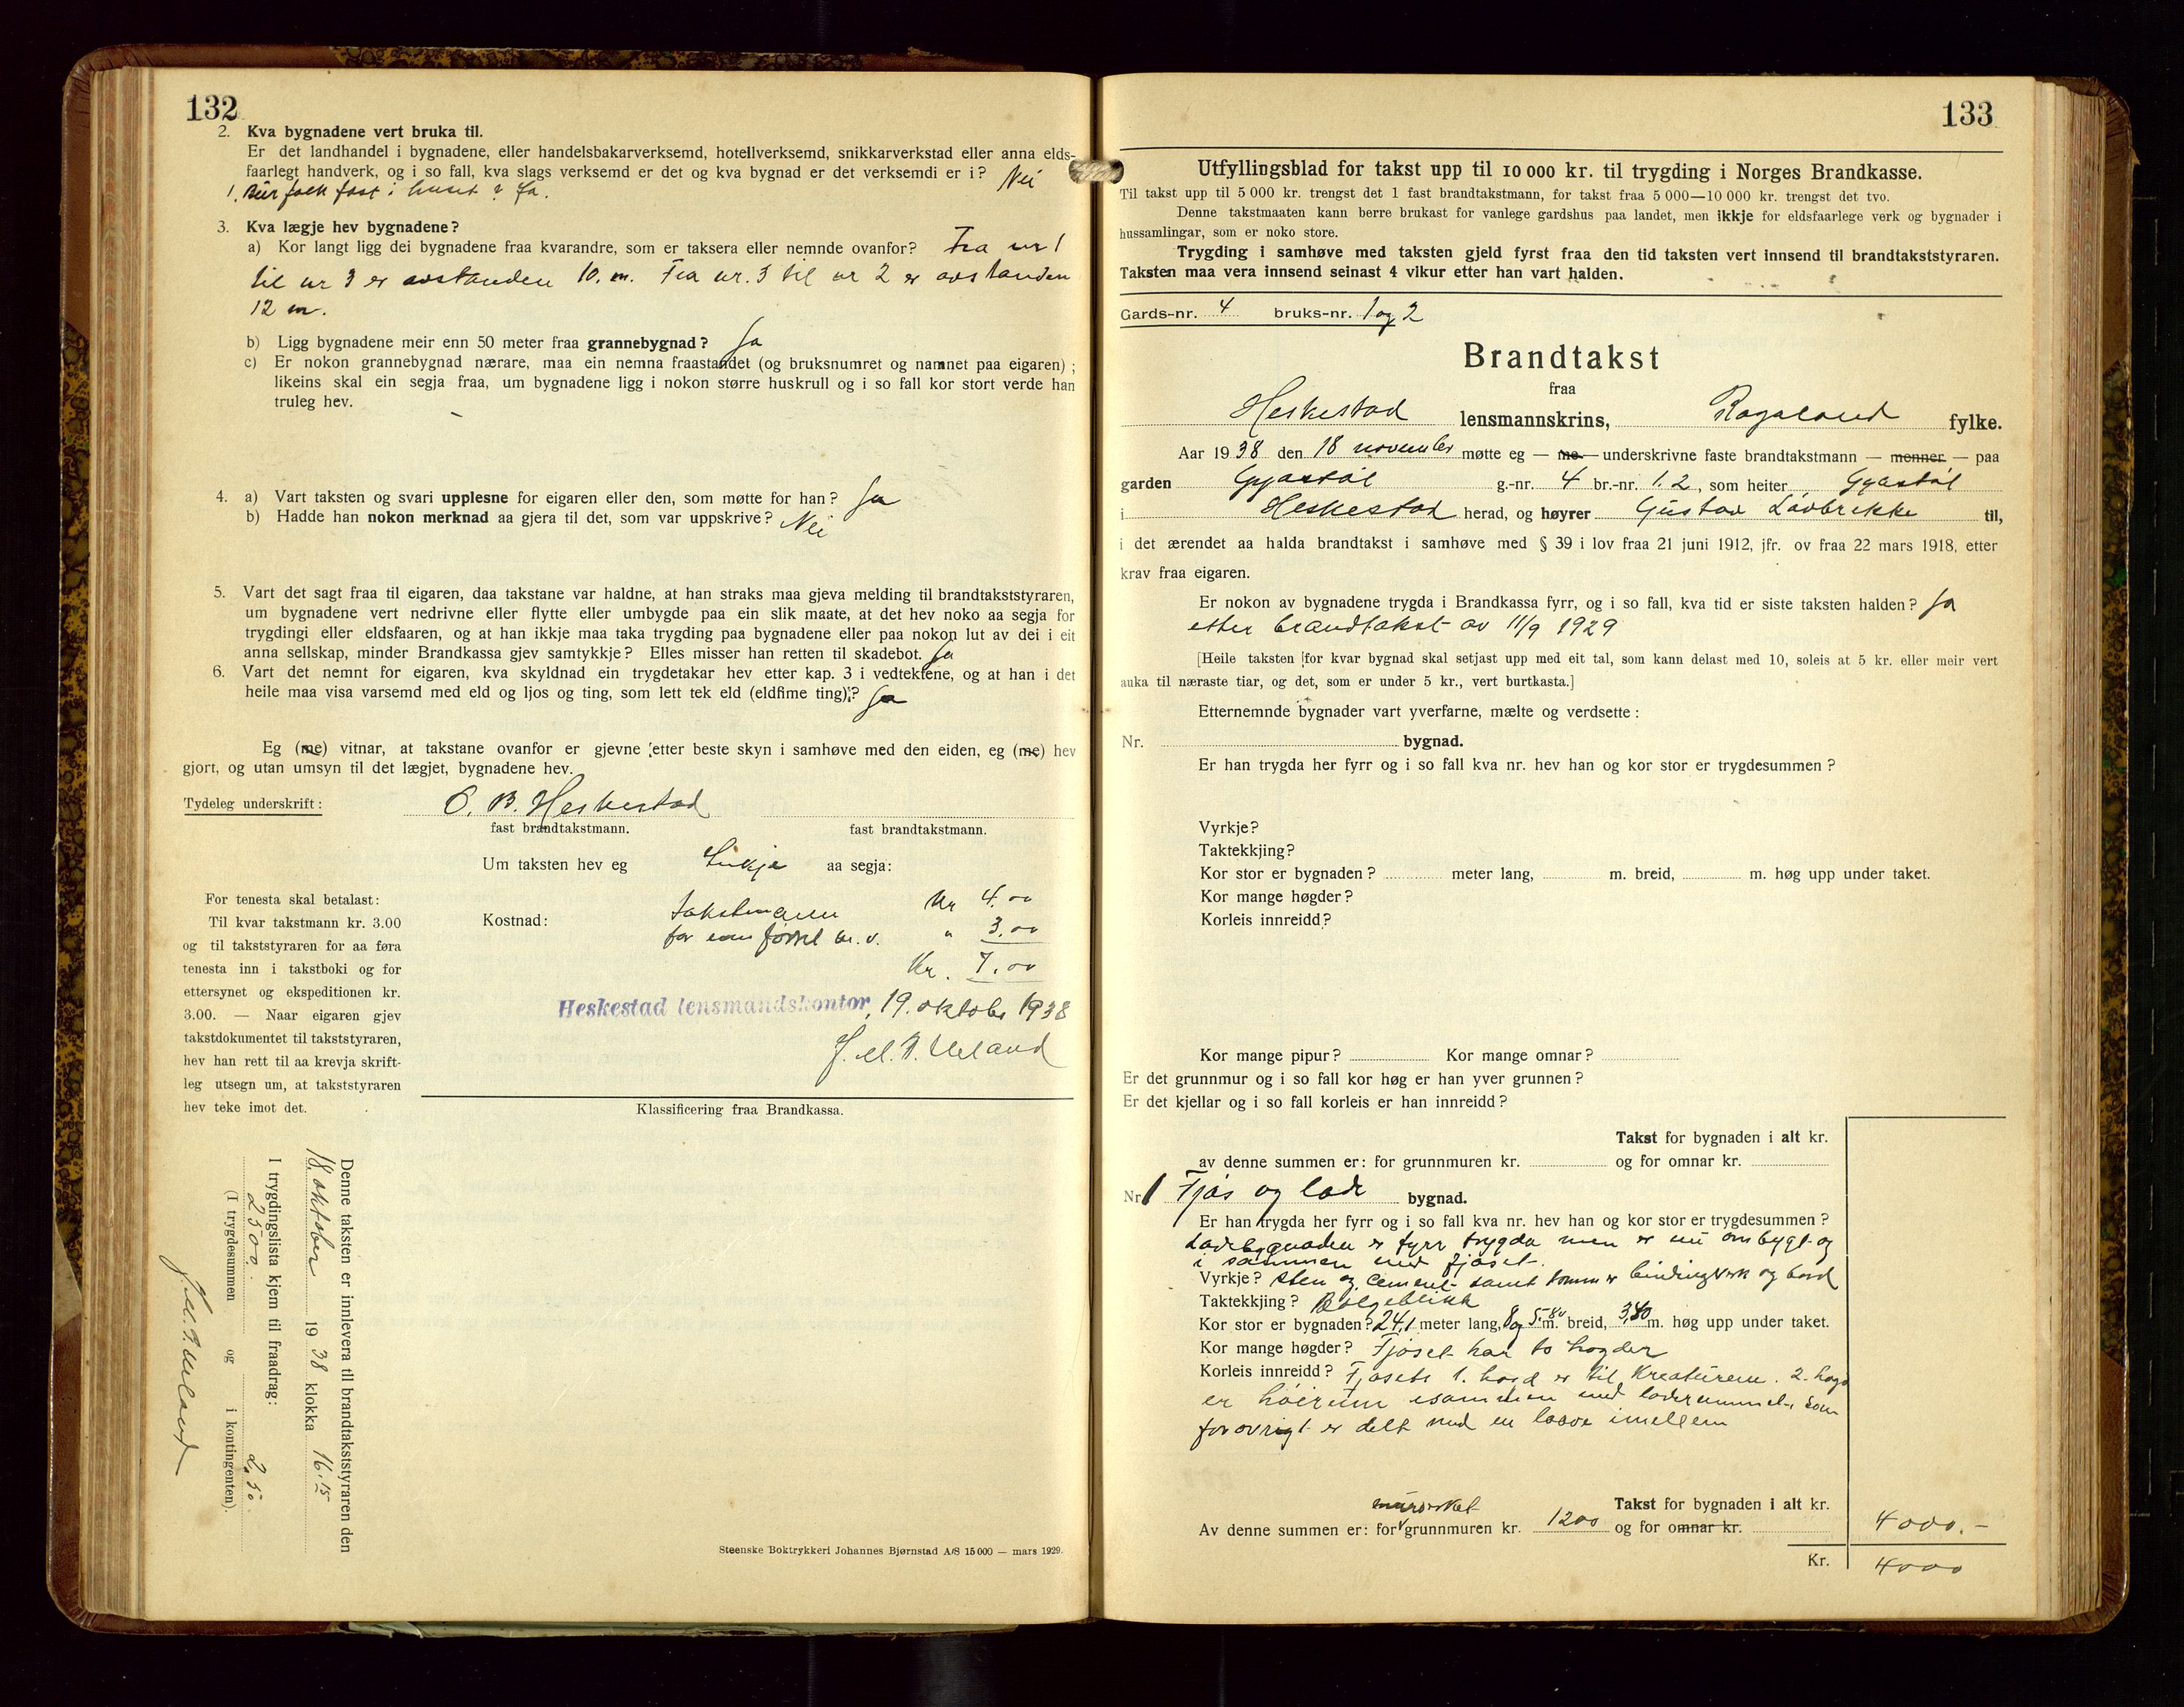 132
2. Kva bygnadene vert bruka til.
Er det landhandel i bygnadene, eller handelsbakarverksemd, hotellverksemd, snikkarverkstad eller anna elds-
faarlegt handverk, og i so fall, kva slags verksemd er det og kva bygnad er det verksemdi er i? Nei
1. Bur folk fast i huset? Ja.
3. Kva lægje hev bygnadene?
a) Kor langt ligg dei bygnadene fraa kvarandre, som er taksera eller nemnde ovanfor? Fra nr 1
til nr 3 er avstanden 10. m. Fra nr. 3 til nr 2 er avstanden
12 m.
b) Ligg bygnadene meir enn 50 meter fraa grannebygnad? Ja
c) Er nokon grannebygnad nærare, maa ein nemna fraastandet (og bruksnumret og namnet paa eigaren) ;
likeins skal ein segja fraa, um bygnadene ligg i nokon større huskrull og i so fall kor stort verde han
truleg hev.
4. a) Vart taksten og svari upplesne for eigaren eller den, som møtte for han? Ja
b) Hadde han nokon merknad aa gjera til det, som var uppskrive? Nei
5. Vart det sagt fraa til eigaren, daa takstane var haldne, at han straks maa gjeva melding til brandtakststyraren,
um bygnadene vert nedrivne eller flytte eller umbygde paa ein slik maate, at det hev noko aa segja for
trygdingi eller eldsfaaren, og at han ikkje maa taka trygding paa bygnadene eller paa nokon lut av dei i eit
anna sellskap, minder Brandkassa gjev samtykkje? Elles misser han retten til skadebot. Ja
6. Vart det nemnt for eigaren, kva skyldnad ein trygdetakar hev etter kap. 3 i vedtektene, og at han i det
heile maa visa varsemd med eld og ljos og ting, som lett tek eld (eldfime ting)? Ja
Eg (me) vitnar, at takstane ovanfor er gjevne etter beste skyn i samhøve med den eiden, eg (me) hev
gjort, og utan umsyn til det lægjet, bygnadene hev.
Tydeleg underskrift: O. B. Heskestad
fast brandtakstmann. fast brandtakstmann.
Um taksten hev eg Inkje aa segja:
For tenesta skal betalast:
Til kvar takstmann kr. 3.00
og til takststyraren for aa føra
tenesta inn i takstboki og for
ettersynet og ekspeditionen kr.
3.00. — Naar eigaren gjev
takstdokumentet til takststyraren,
hev han rett til aa krevja skrift-
leg utsegn um, at takststyraren
hev teke imot det.
Kostnad: takstmann Kr 4.00
for innførsel m. v. " 3.00
Kr. 7.00
Heskestad lensmandskontor, 19. oktober 1938
Klassificering fraa Brandkassa.
Denne taksten er innlevera til brandtakststyraren den
18. oktober 1938 klokka 16.15
I trygdingslista kjem til fraadrag:
2500. 2,50.
(I trygdesummen og i kontingenten).
Steenske Boktrykkeri Johannes Bjørnstad A/S 15 000 — mars 1929.
133
Utfyllingsblad for takst upp til 10 000 kr. til trygding i Norges Brandkasse.
Til takst upp til 5 000 kr. trengst det 1 fast brandtakstmann, for takst fraa 5 000—10 000 kr. trengst det tvo.
Denne takstmaaten kann berre brukast for vanlege gardshus paa landet, men ikkje for eldsfaarlege verk og bygnader i
hussamlingar, som er noko store.
Trygding i samhøve med taksten gjeld fyrst fraa den tid taksten vert innsend til brandtakststyraren.
Taksten maa vera innsend seinast 4 vikur etter han vart halden.
Gards-nr. 4 bruks-nr. 1 og 2
Brandtakst
fraa
Heskestad lensmannskrins, Rogaland fylke.
Aar 1938 den 18 november møtte eg — me — underskrivne faste brandtakstmann — menner — paa
garden Gyastøl g.-nr. 4 br.-nr. 1. 2, som heiter Gyastøl
i Heskestad herad, og høyrer Gustav Lovbrekke til,
i det ærendet aa halda brandtakst i samhøve med § 39 i lov fraa 21 juni 1912, jfr. ov fraa 22 mars 1918, etter
krav fraa eigaren.
Er nokon av bygnadene trygda i Brandkassa fyrr, og i so fall, kva tid er siste taksten halden? Ja
etter brandtakst av 11/9 1929
[Heile taksten for kvar bygnad skal setjast upp med eit tal, som kann delast med 10, soleis at 5 kr. eller meir vert
auka til næraste tiar, og det, som er under 5 kr., vert burtkasta.]
Etternemnde bygnader vart yverfarne, mælte og verdsette :
Nr. bygnad.
Er han trygda her fyrr og i so fall kva nr. hev han og kor stor er trygdesummen ?
Vyrkje?
Taktekkjing?
Kor stor er bygnaden ? meter lang, m. breid, m. høg upp under taket.
Kor mange høgder?
Korleis innreidd?
Kor mange pipur? Kor mange omnar?
Er det grunnmur og i so fall kor høg er han yver grunnen ?
Er det kjellar og i so fall korleis er han innreidd ?
Takst for bygnaden i alt kr.
av denne summen er: for grunnmuren kr. og for omnar kr.
Nr 1 Fjøs og lade bygnad.
Er han trygda her fyrr og i so fall kva nr. hev han og kor stor er trygdesummen ?
Ladebygnaden er fyrr trygda men er nu ombygt og
i sammen med fjøset.
Vyrkje? Sten og cement samt tømmer bindingverk og bord
Taktekkjing? Bølgeblikk
Kor stor er bygnaden? 24,1 meter lang, 8 og 5.80 m. breid, 3,40 m. høg upp under taket.
Kor mange høgder? Fjøset har to høgder
Korleis innreidd? Fjøsets 1. høgd er til Kreaturene. 2. høgd
er høirum isammen med laderummet, som
forøvrigt er delt med en laave imellem
Takst for bygnaden i alt kr. 4000.-
murverket
Av denne summen er: for grunnmuren kr. 1200 og for omnar kr.
Kr. 4000